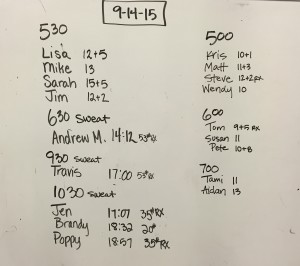 9-14-15
530
Lisa 12+5
Mike 13
Sarah 15+5
Jim 12+2
630 Sweat
Andrew M. 14:12 53#RX
930 Sweat
Travis 17:00 53#RX
1030 Sweat
Jen 17:07 35#RX
Brandy 18:32 20#
Poppy 18:57 35#RX
500
Kris 10+1
Matt 11+3
Steve 12+2 RX
Wendy 10
600
Tom 9+5 RX
Susan 11
Pete 10+8
700
Tami 11
Aidan 13